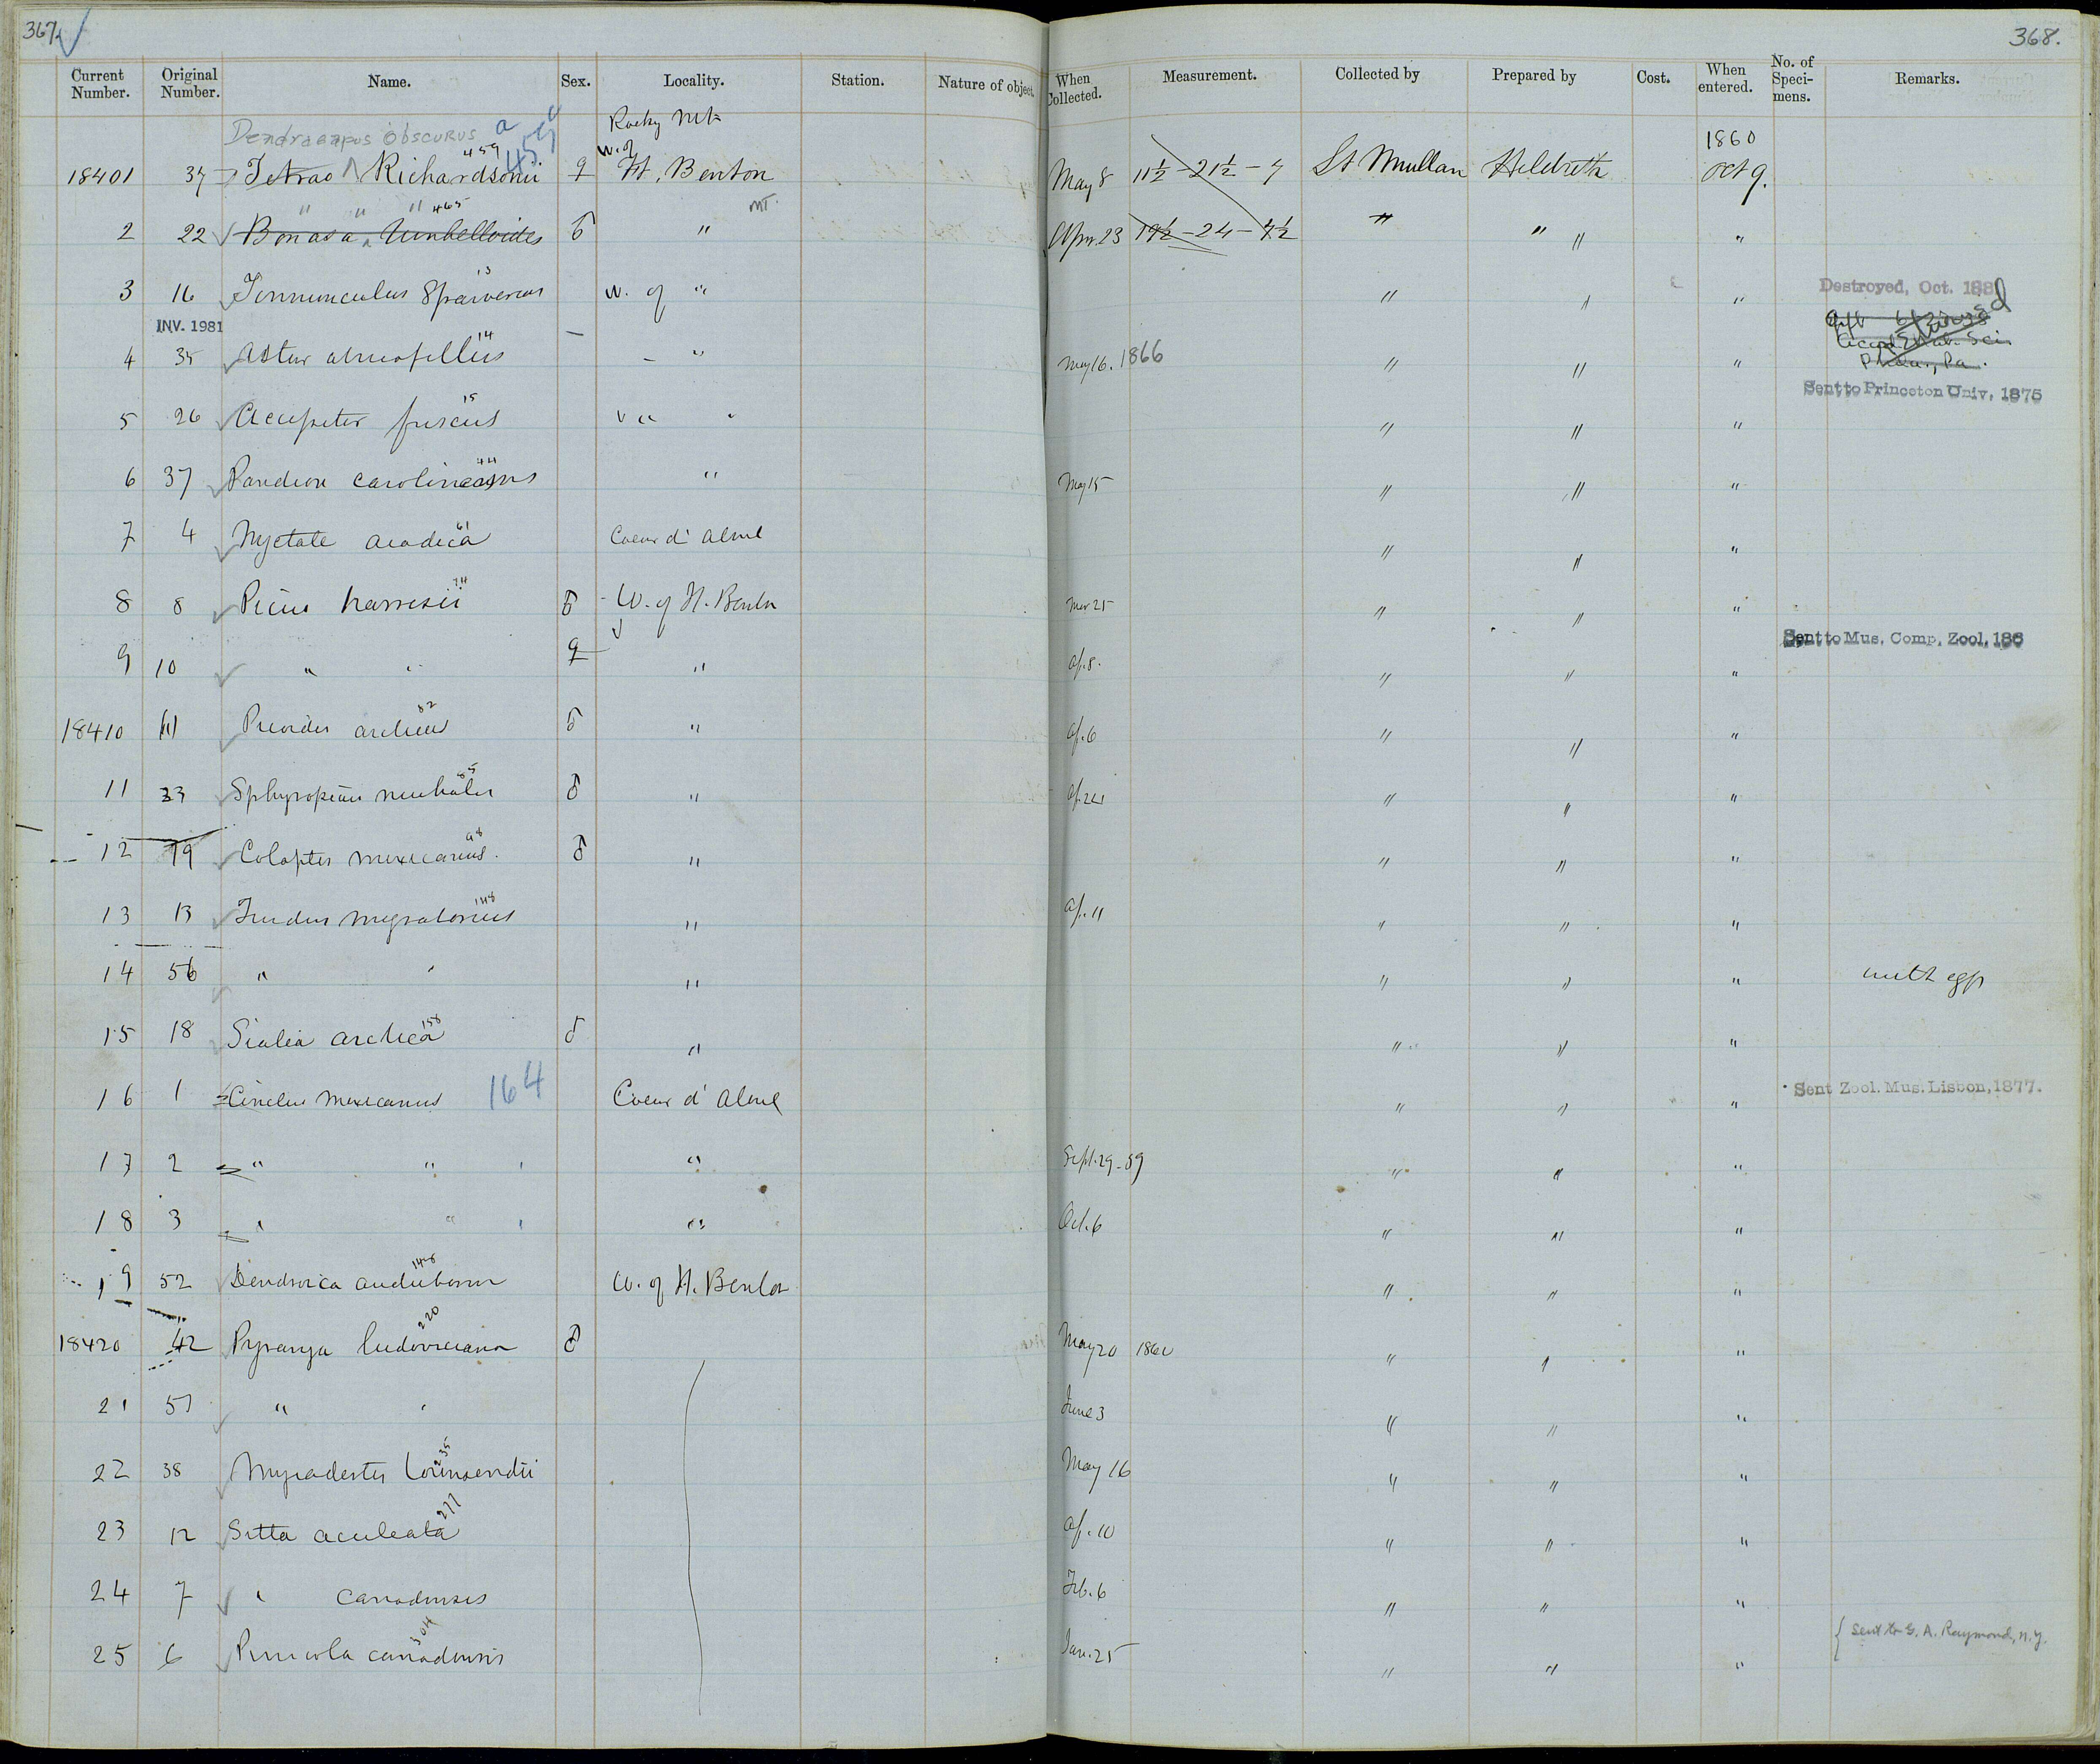 367.
368.
Current Number. Original Number. Name. Sex. Locality. Station. Nature of object. When Collected. Measurement. Collected by Prepared by Cost. When entered. No. of Speci-mens. Remarks.
Dendragapus obscurus a 459a Rocky Mts 1860
18401 34 Tetrao Richardsonii 459 ♀ W. of Ft. Benton May 8 11½ - 21½ - 7 Lt Mullan Hildreth Oct 9.
" " " 465 MT.
2 22 Bonasa Umbelloides ♂ " Apr. 23 19½ - 24 - 7½ " " " "
3 16 Tinnunculus Sparverius 13 W. of " " " " Destroyed, Oct. 188
INV. 1981
4 35 Astur atricapillus 14 - " May 16. 1866 " " "
Acad. Nat. Sci.
Phila., Pa.
Sent to Princeton Univ. 1875
5 26 Accipiter fuscus 15 " " " " "
6 37 Pandion carolinensis 44 " May 15 " " "
7 4 Nyctale acadica 61 Coeur d' Alene " " "
8 8 Picus harrisii 74 ♂ W. of Ft. Benton Mar 25 " " "
Sent to Mus. Comp. Zool. 186
9 10 " " ♀ " Ap. 8. " " "
18410 11 Picoides arcticus 82 ♂ " Ap. 6 " " "
11 23 Sphyropicus nuchalis 85 ♂ " Ap. 24 " " "
12 19 Colaptes mexicanus. 98 ♂ " " " "
13 13 Turdus migratorius 148 " Ap. 11 " " "
14 56 " " " " " " with eggs
15 18 Sialia arctica 158 ♂ " " " "
16 1 Cinclus mexicanus 164 Coeur d' Alene " " " Sent Zool. Mus. Lisbon, 1877.
17 2 " " " Sept. 29 - 59 " " "
18 3 " " " Oct. 6 " " "
19 52 Dendroica audubonii W. of Ft. Benton " " "
18420 42 Pyranga ludoviciana 220 ♂ May 20 1860 " " "
21 51 " " June 3 " " "
22 38 Myiadestes townsendii 235 May 16 " " "
23 12 Sitta aculeata 277 Ap. 10 " " "
24 7 " canadensis Feb. 6 " " "
25 6 Pinicola canadensis 304 Jan. 25 " " " { Sent to G. A. Raymond, N.Y.